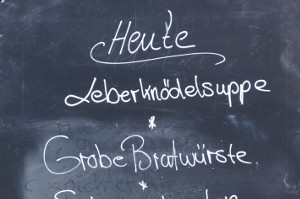 Heute
Leberknödelsuppe
*
Grobe Bratwürste
*